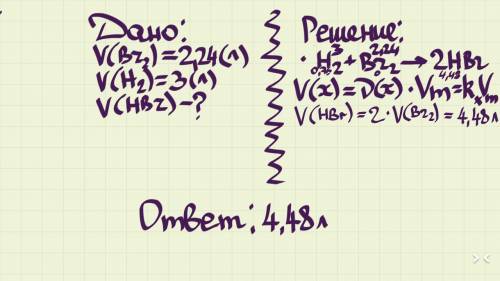 Дано:
V(Br₂)=2,24(л)
V(H₂)=3(л)
V(HBr)-?
Решение:
3 2,24
· H₂ + Br₂ → 2HBr
4,48
V(x)=D(x)·Vm=kₓVm
V(HBr)=2·V(Br₂)=4,48л
Ответ: 4,48л